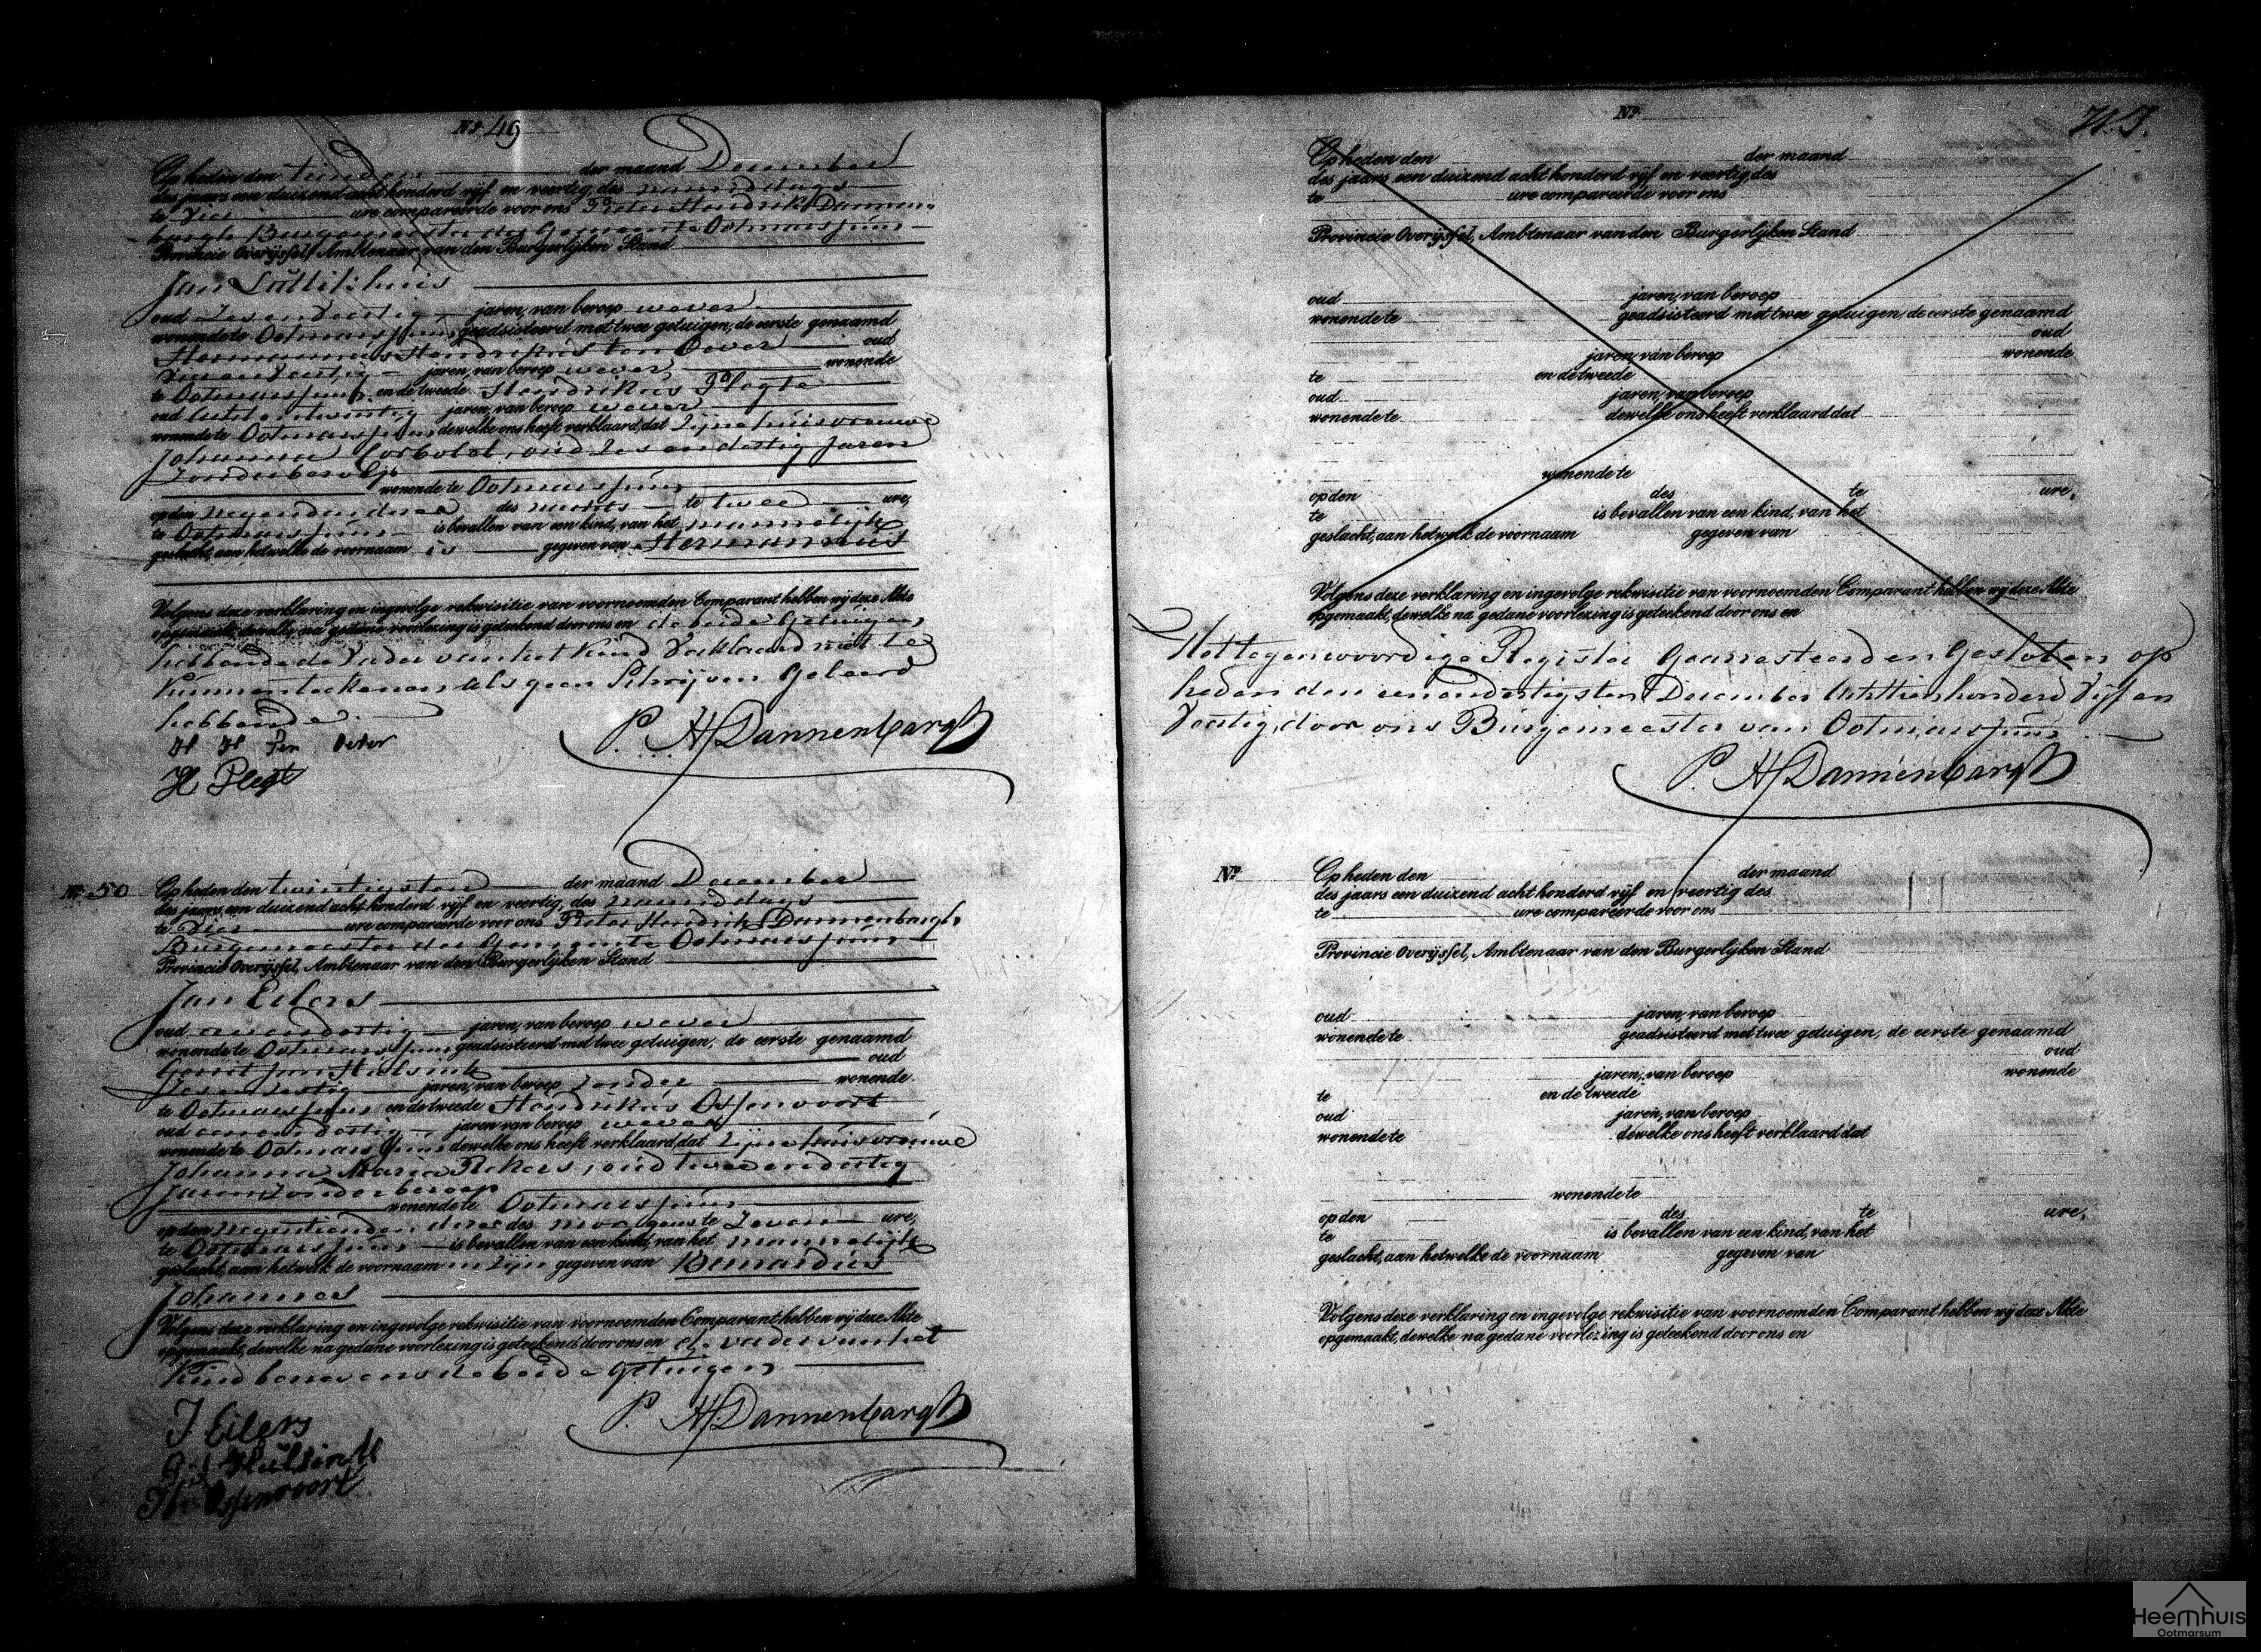 No. 49
Op heden den tienden der maand December
des jaars een duizend acht honderd vijf en veertig, des namiddags
te Vier ure compareerde voor ons Pieter Hendrik Dannen-
bargh Burgemeester der Gemeente Ootmarssum
Provincie Overijssel, Ambtenaar van den Burgerlijken Stand
Jan Luttikhuis
oud Zesendertig jaren, van beroep wever
wonende te Ootmarssum geadsisteerd met twee getuigen, de eerste genaamd
Hermannus Hendrikus ten Oever oud
jaren, van beroep wever wonende
te Ootmarssum en de tweede Hendrikus Plegt
oud achtentwintig jaren, van beroep wever
wonende te Ootmarssum dewelke ons heeft verklaard, dat Zijne huisvrouwe
Johanna oud Zes en dertig Jaren
Zonder beroep
wonende te Ootmarssum
op den negenden dezer des te twee ure,
te Ootmarssum is bevallen van een kind, van het mannelijk
geslacht, aan hetwelke de voornaam is gegeven van Hermannus
Volgens deze verklaring en ingevolge rekwisitie van voornoemden Comparant hebben wij deze Akte
opgemaakt, dewelke na gedane voorlezing is geteekend door ons en de beide Getuigen,
hebbende de Vader van het Kind Verklaard niet te
Kunnen teekenen als geen Schrijven Geleerd
hebbende.
H H Ten Oever
P. H. Dannenbargh
H Plegt
No. 50
Op heden den twintigsten der maand December
des jaars een duizend acht honderd vijf en veertig, des namiddags
te Vier ure compareerde voor ons Pieter Hendrik Dannenbargh,
Burgemeester der Gemeente Ootmarssum
Provincie Overijssel, Ambtenaar van den Burgerlijken Stand
Jan Eilers
oud eenendertig jaren, van beroep wever
wonende te Ootmarssum geadsisteerd met twee getuigen, de eerste genaamd
Gerrit Jan Hulsink oud
jaren, van beroep Zonder wonende
te Ootmarssum en de tweede Hendrikus Ossenvoort
oud eenendertig jaren, van beroep wever
wonende te Ootmarssum dewelke ons heeft verklaard, dat Zijne huisvrouwe
Johanna Maria oud tweeendertig
Jaren Zonder beroep
wonende te Ootmarssum
op den negentienden dezer des morgens te Zeven ure,
te Ootmarssum is bevallen van een kind, van het mannelijk
geslacht, aan hetwelk de voornaamen Zijn gegeven van Bernardus
Johannes
Volgens deze verklaring en ingevolge rekwisitie van voornoemden Comparant hebben wij deze Akte
opgemaakt, dewelke na gedane voorlezing is geteekend door ons en de vader van het
Kind benevens de beide Getuigen
P. H. Dannenbargh
J Eilers
G J Hulsink
H. Ossenvoort
No.
Op heden den der maand
des jaars een duizend acht honderd vijf en veertig, des
te ure compareerde voor ons
Provincie Overijssel, Ambtenaar van den Burgerlijken Stand
oud jaren, van beroep
wonende te geadsisteerd met twee getuigen, de eerste genaamd
oud
jaren, van beroep wonende
te en de tweede
oud jaren, van beroep
wonende te dewelke ons heeft verklaard dat
wonende te
op den des te ure,
te is bevallen van een kind, van het
geslacht, aan hetwelk de voornaam gegeven van
Volgens deze verklaring en ingevolge rekwisitie van voornoemden Comparant hebben wij deze Akte
opgemaakt, dewelke na gedane voorlezing is geteekend door ons en
Het tegenwoordige Register Gearresteerd en Gesloten op
heden den eenendertigsten December Achttienhonderd Vijf en
Veertig, door ons Burgemeester van Ootmarssum
P. H. Dannenbargh
No.
Op heden den der maand
des jaars een duizend acht honderd vijf en veertig des
te ure compareerde voor ons
Provincie Overijssel, Ambtenaar van den Burgerlijken Stand
oud jaren, van beroep
wonende te geadsisteerd met twee getuigen, de eerste genaamd
oud
jaren, van beroep wonende
te en de tweede
oud jaren, van beroep
wonende te dewelke ons heeft verklaard dat
wonende te
op den des te ure,
te is bevallen van een kind, van het
geslacht, aan hetwelke de voornaam gegeven van
Volgens deze verklaring en ingevolge rekwisitie van voornoemden Comparant hebben wij deze Akte
opgemaakt, dewelke na gedane voorlezing is geteekend door ons en
Heemhuis
Ootmarsum